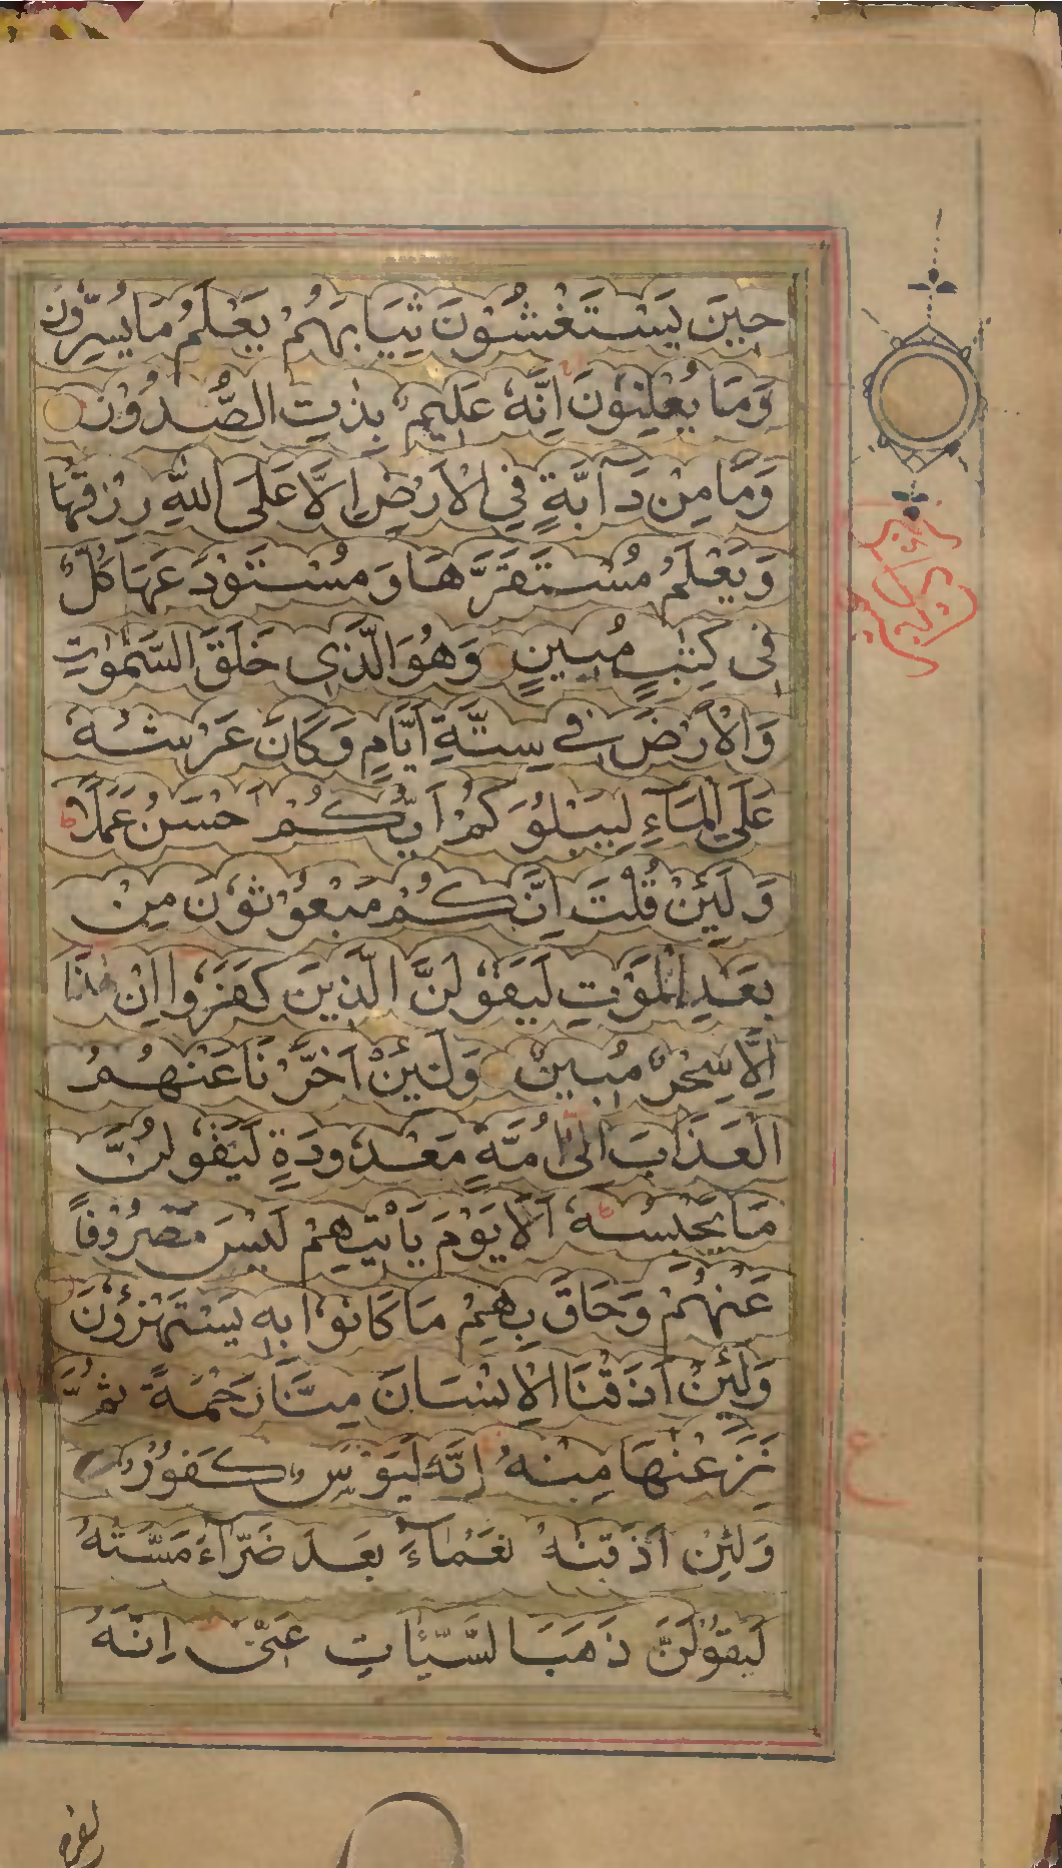 حِينَ يَسْتَغْشُوْنَ ثِيَابَهُمْ يَعْلَمُ مَا يُسِرُّوْنَ
وَمَا يُعْلِنُوْنَ اِنَّهٗ عَلِيْمٌۢ بِذٰتِ الصُّدُوْنِ
وَمَا مِنْ دَآبَّةٍ فِي الْاَرْضِ اِلَّا عَلَى اللّٰهِ رِزْقُهَا
وَيَعْلَمُ مُسْتَقَرَّهَا وَمُسْتَوْدَعَهَا كُلٌّ
فِى كِتٰبٍ مُبِيْنٍ وَهُوَ الَّذِى خَلَقَ السَّمٰوٰتِ
وَالْاَرْضَ فِي سِتَّةِ اَيَّامٍ وَكَانَ عَرْشُهٗ
عَلَى الْمَآءِ لِيَبْلُوَكُمْ اَيُّكُمْ اَحْسَنُ عَمَلًا
وَلَئِنْ قُلْتَ اِنَّكُمْ مَبْعُوْثُوْنَ مِنْ
بَعْدِ الْمَوْتِ لَيَقُوْلَنَّ الَّذِيْنَ كَفَرُوا اِنْ هٰذَا
اِلَّا سِحْرٌ مُبِيْنٌ وَلَئِنْ اَخَّرْنَا عَنْهُمُ
الْعَذَابَ اِلٰى اُمَّةٍ مَعْدُوْدَةٍ لَيَقُوْلُنَّ
مَا يَحْبِسُهٗ اَلَا يَوْمَ يَأْتِيْهِمْ لَيْسَ مَصْرُوْفًا
عَنْهُمْ وَحَاقَ بِهِمْ مَا كَانُوْا بِهٖ يَسْتَهْزِؤُنَ
وَلَئِنْ اَذَقْنَا الْاِنْسَانَ مِنَّا رَحْمَةً ثُمَّ
نَزَعْنٰهَا مِنْهُ اِنَّهٗ لَيَؤُسٌ كَفُوْرٌ
وَلَئِنْ اَذَقْنٰهُ نَعْمَآءَ بَعْدَ ضَرَّآءَ مَسَّتْهُ
لَيَقُوْلَنَّ ذَهَبَ السَّيِّاٰتِ عَنِّى اِنَّهُ
ع
لفرح